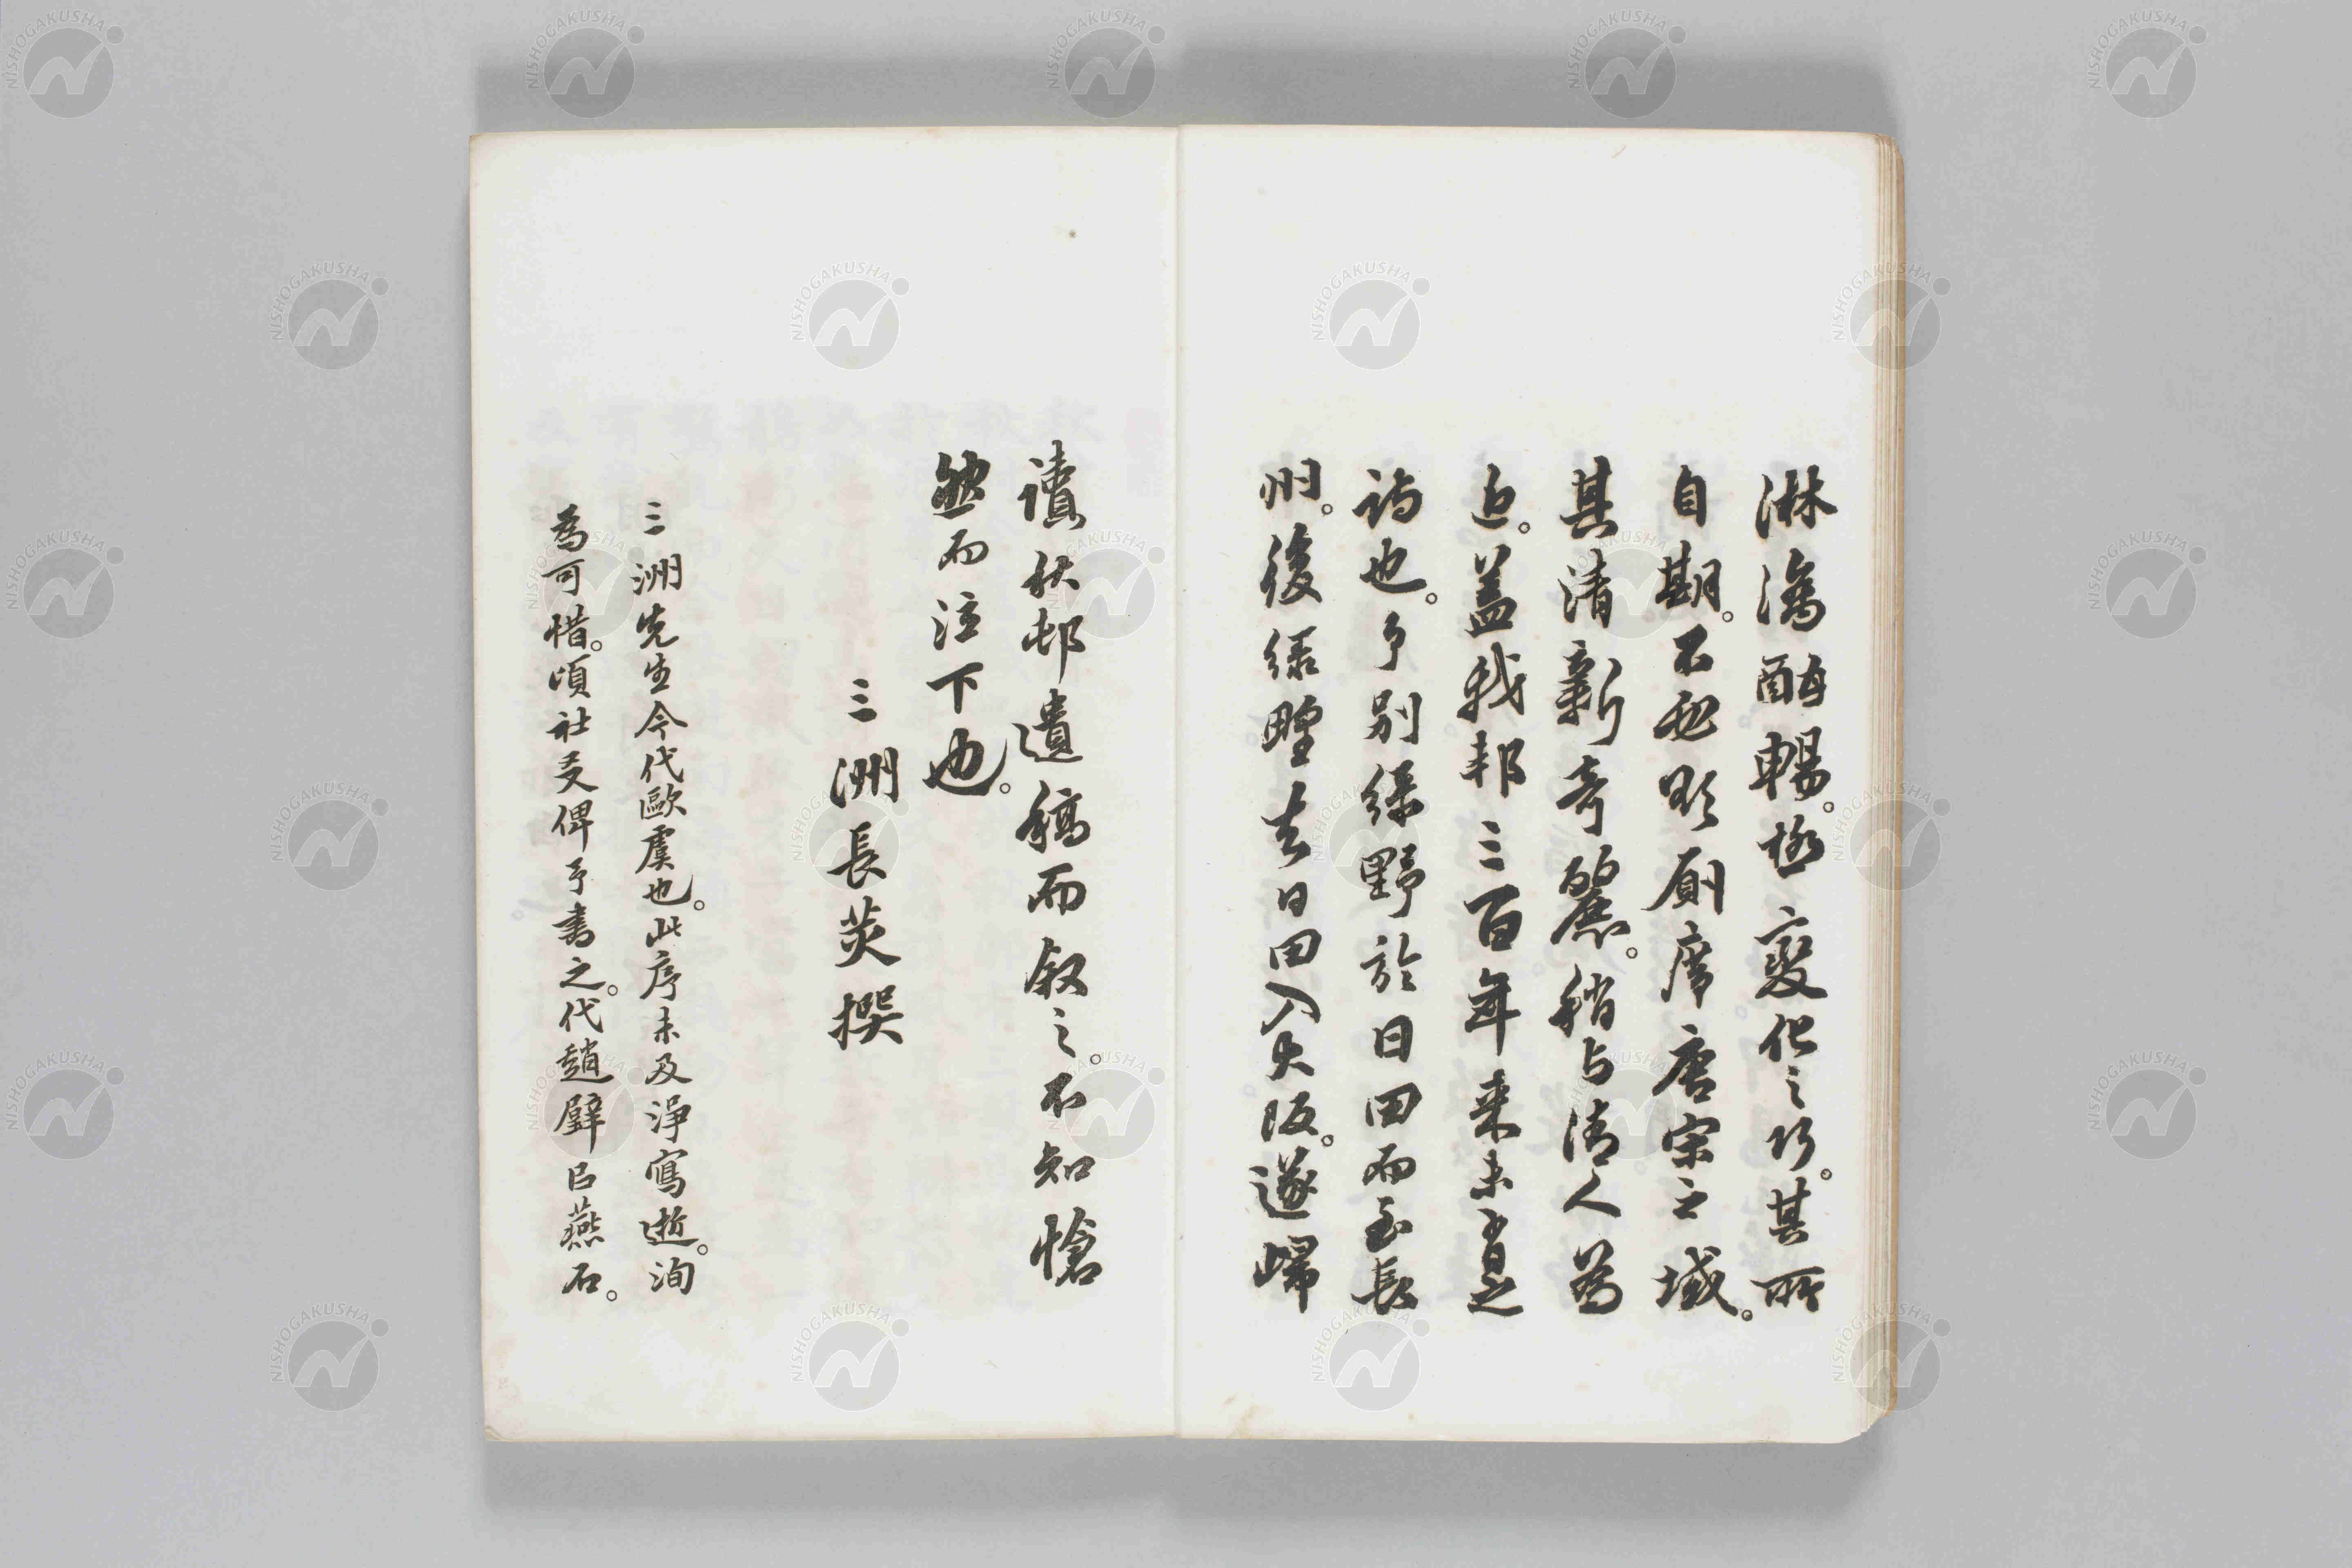 淋漓酣暢。極變化之巧。其所
自期。不必欺廁席唐宋之域。
其清新奇麗。稍与清人為
近。盖我邦三百年来未有之
詩也。予別緑野於日田而至長
州。後緑野去日田入大阪。遂帰
讀秋邨遺稿而叙之。不知愴
然而泣下也。
三洲長炗撰
三洲先生今代歐虞也。此序未及淨寫逝。洵
為可惜。頃社友俾予書之。代趙璧㠯燕石。
NISHOGAKUSHA